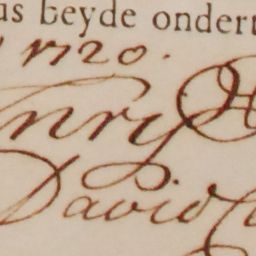 us beyde ondert
1720.
nry H
David C